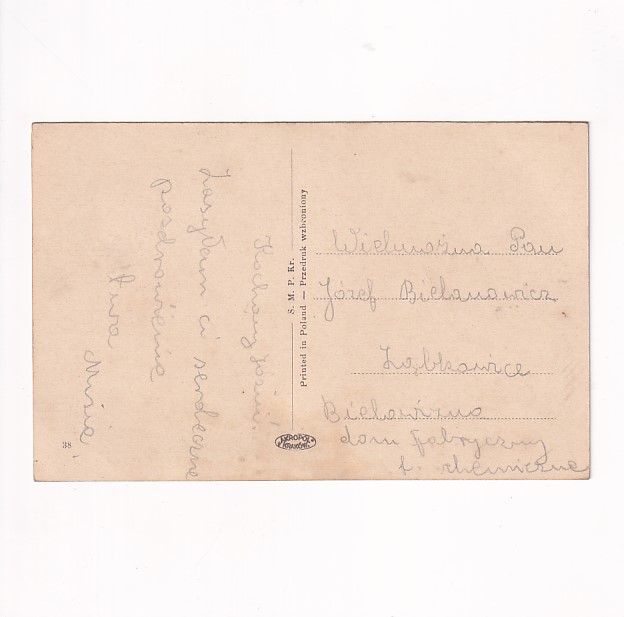 Kochany Józiu!
Zasyłam ci serdeczne
pozdrowienie
Twa Misia
38
S. M. P. Kr.
Printed in Poland — Przedruk wzbroniony
AKROPOL
KRAKÓW
Wielmożna Pan
Józef Bielanowicz
Ząbkowice
Bielowizna
dom fabryczny
f. chemiczne